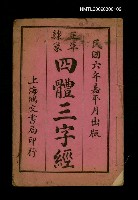 NMTL20050030102
民國六年嘉平月出版
正草隸篆
四體三字經
上海鴻文書局印行